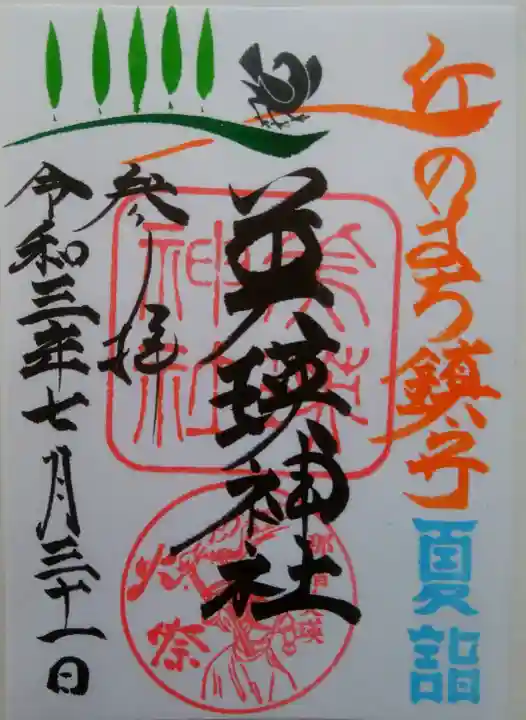 丘のまち鎮守 夏詣
美瑛神社
参拝
令和三年七月三十一日
美瑛
神社
火祭